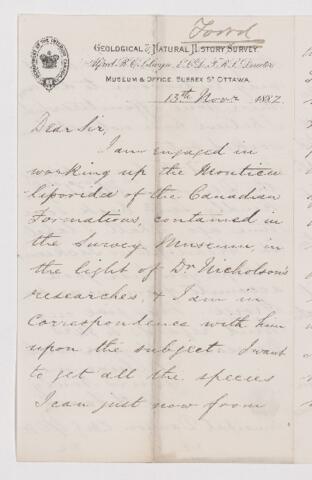 Foord
GEOLOGICAL & NATURAL HISTORY SURVEY
Alfred R. C. Selwyn, L.L.D., F.R.S. Director
MUSEUM & OFFICE, SUSSEX ST OTTAWA.
13th Novr 1882
Dear Sir,
I am engaged in
working up the Monticu
liporidea of the Canadian
Formations, contained in
the Survey Museum, in
the light of Dr Nicholson's
researches, & I am in
correspondence with him
upon the subject. I want
to get all the species
I can just now from